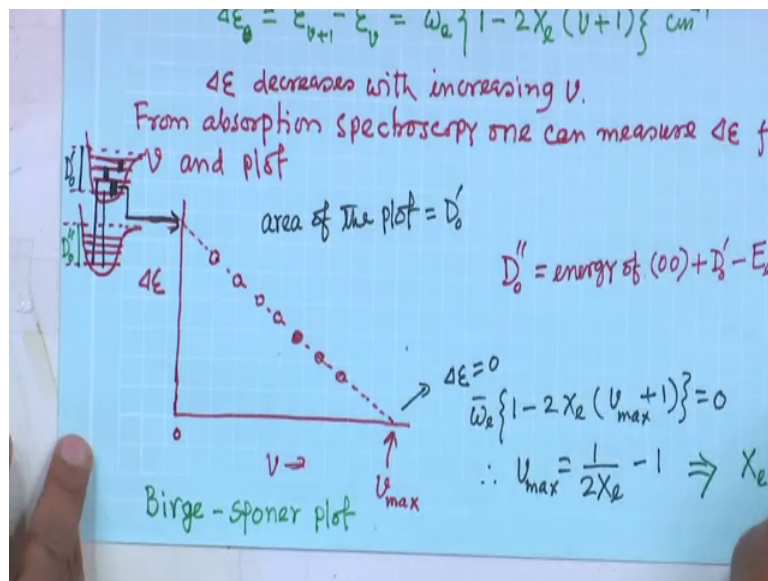 Δε = ε_{v+1} - ε_v = ω̄_e {1 - 2x_e (v+1)} cm⁻¹
Δε decreases with increasing v.
From absorption spectroscopy one can measure Δε f
v and plot
D₀′
D₀″
area of the plot = D₀′
D₀″ = energy of (00) + D₀′ - E
Δε
Δε = 0
ω̄_e {1 - 2x_e (v_max + 1)} = 0
∴ v_max = 1/2x_e - 1 ⇒ x_e
0
v →
v_max
Birge-sponer plot